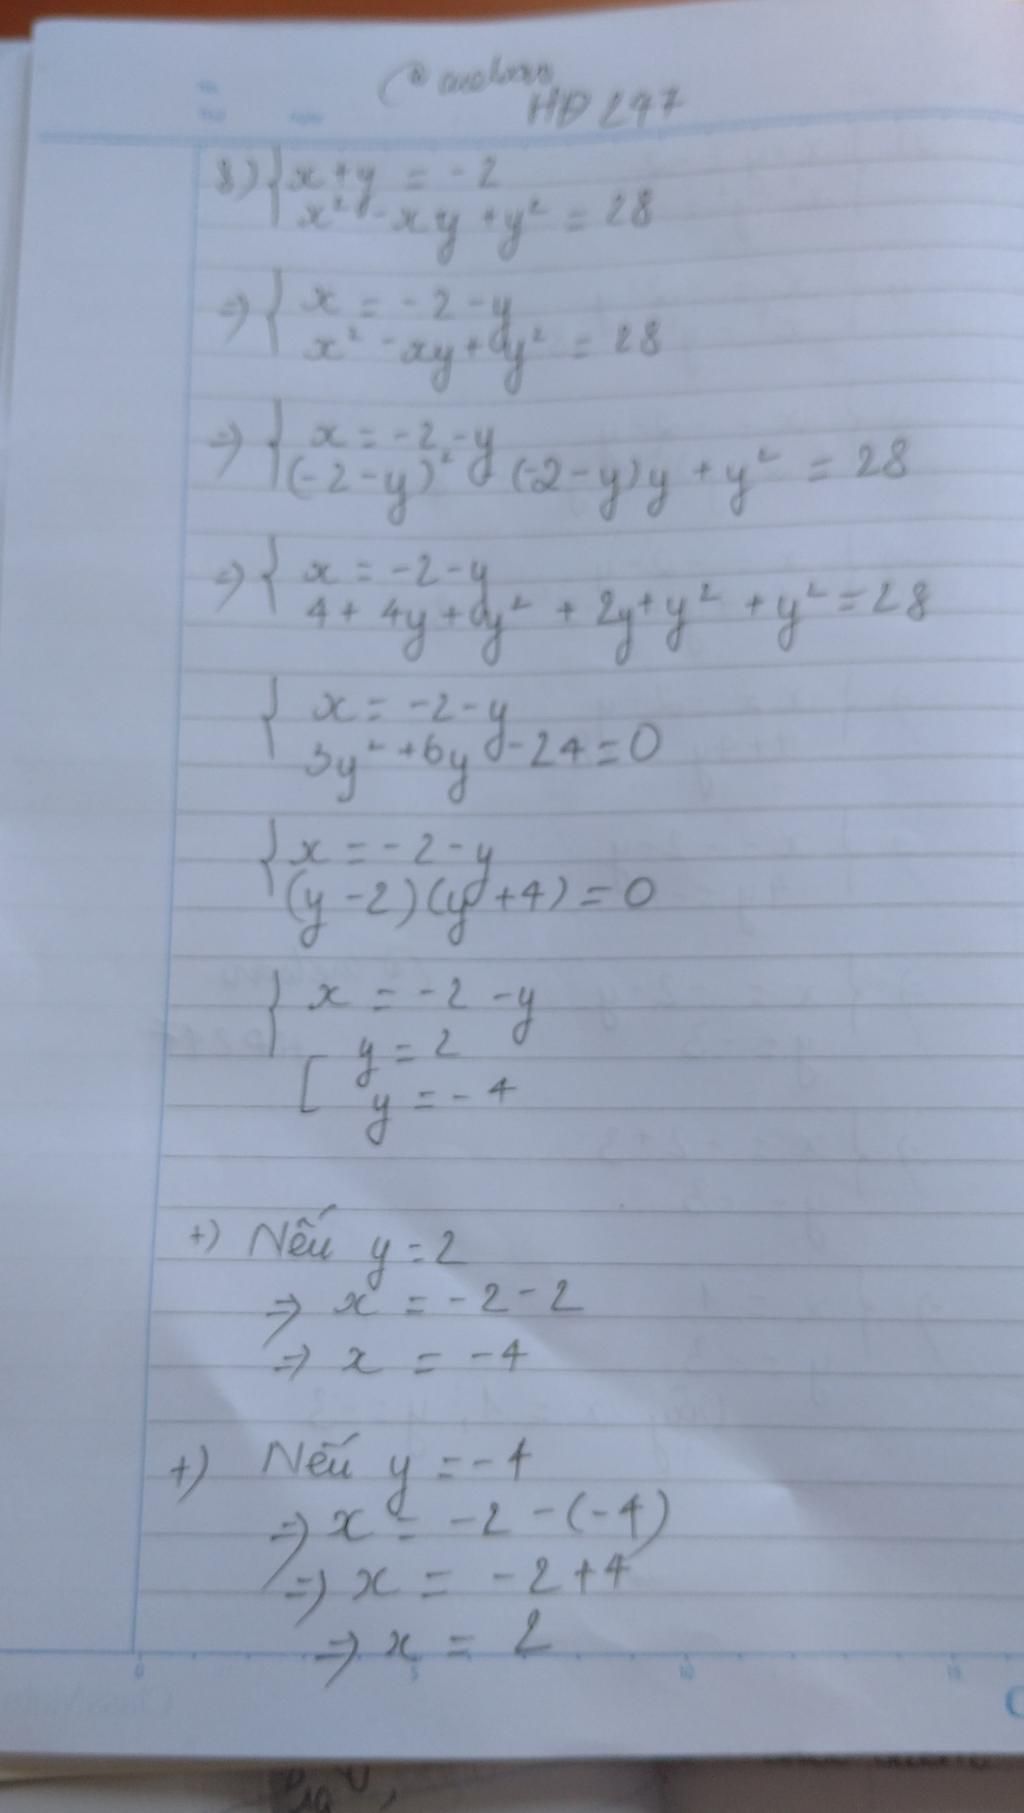 HD 247
8) { x + y = -2
x² - xy + y² = 28
⇒ { x = -2 - y
x² - xy + y² = 28
⇒ { x = -2 - y
(-2 - y)² (-2 - y)y + y² = 28
⇒ { x = -2 - y
4 + 4y + y² + 2y + y² + y² = 28
{ x = -2 - y
3y² + 6y - 24 = 0
{ x = -2 - y
(y - 2)(y + 4) = 0
{ x = -2 - y
[ y = 2
y = -4
+) Nếu y = 2
⇒ x = -2 - 2
⇒ x = -4
+) Nếu y = -4
⇒ x = -2 - (-4)
⇒ x = -2 + 4
⇒ x = 2
0 5 10 15